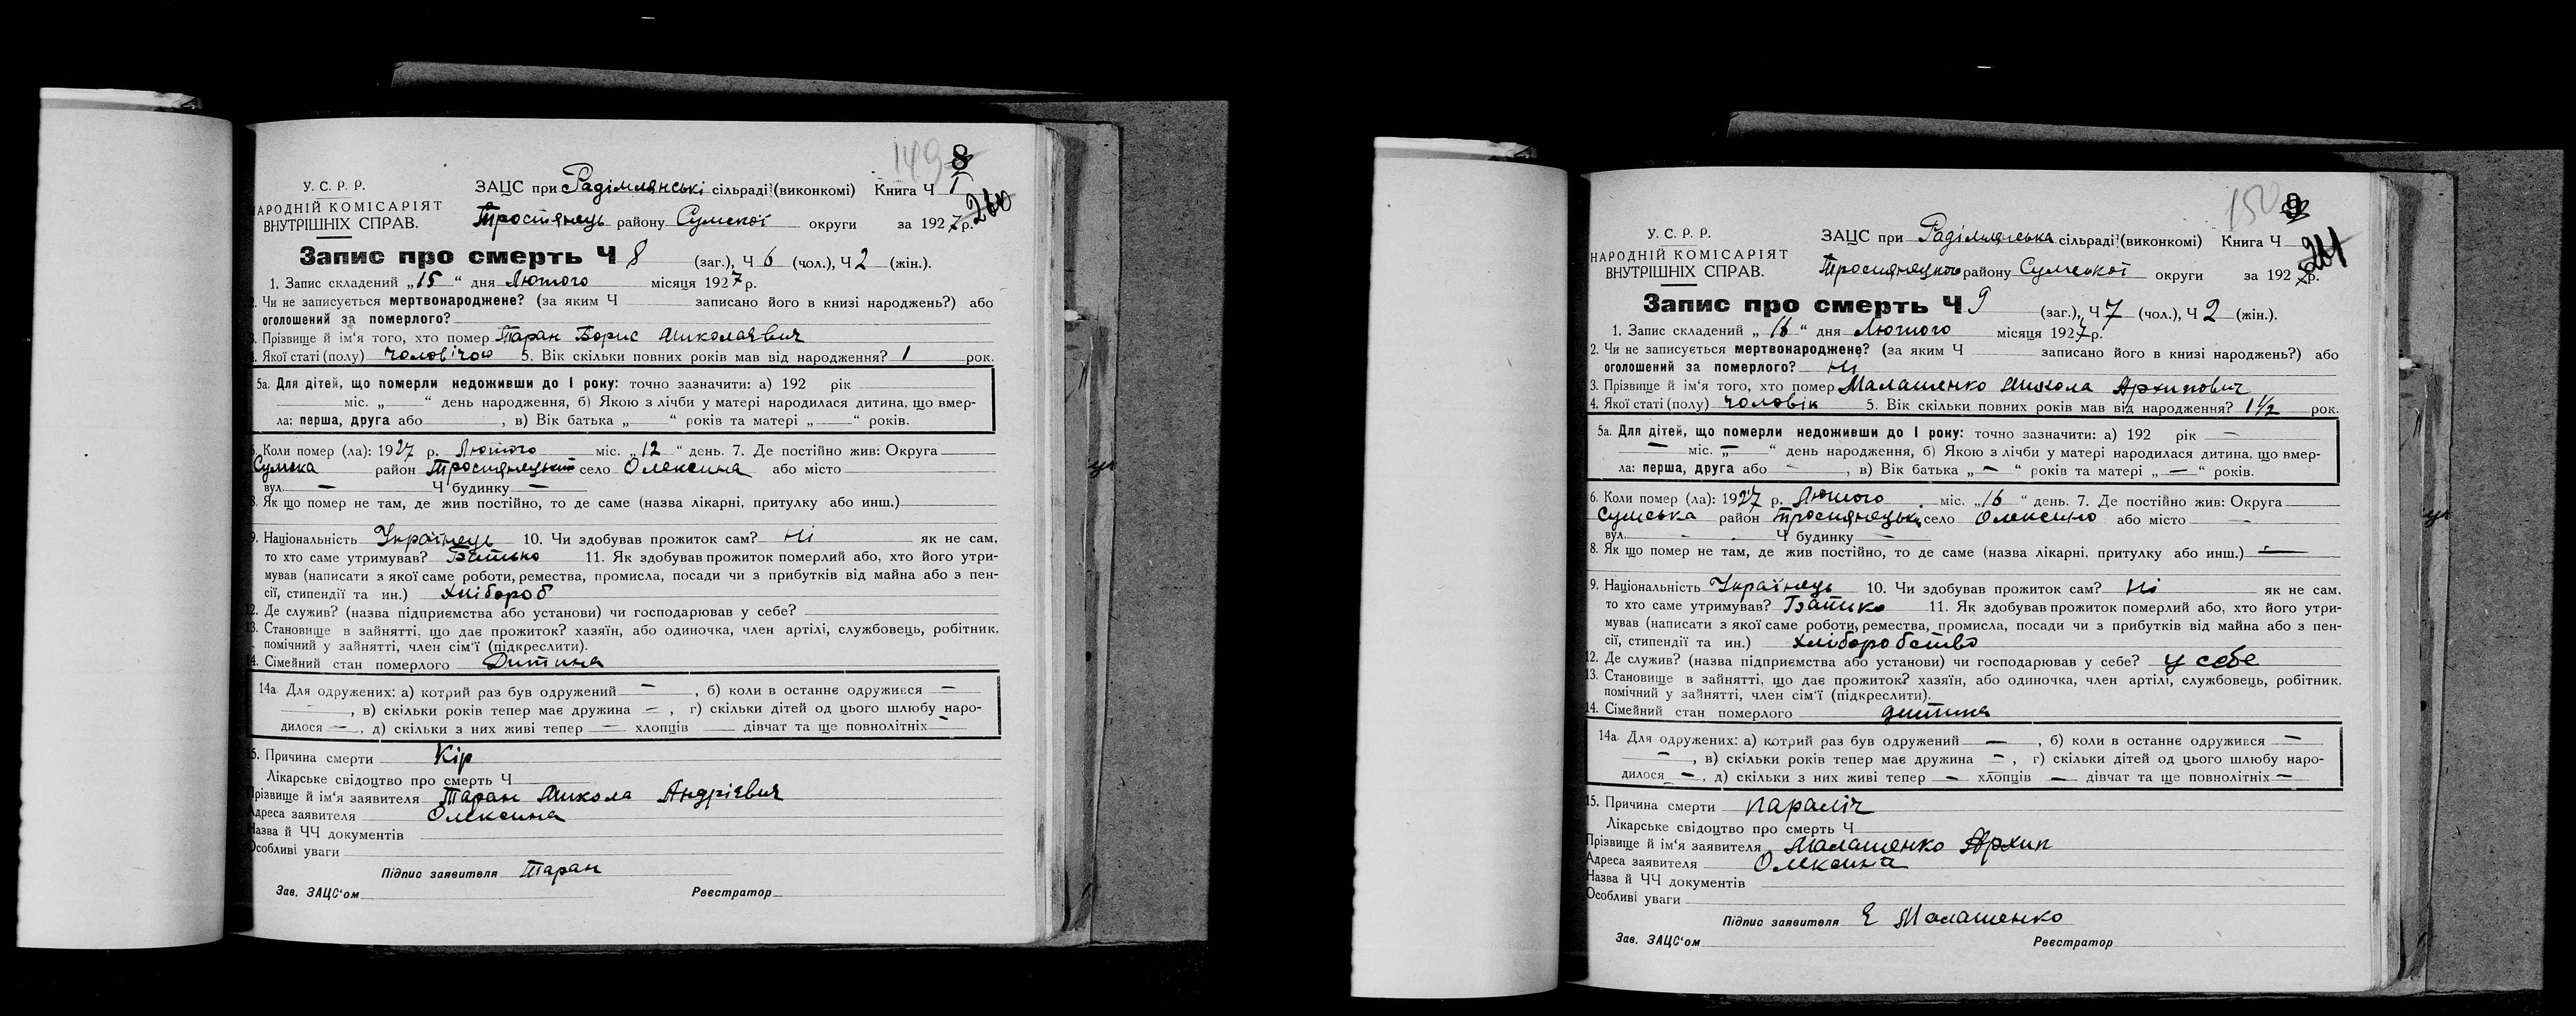 149 8
У. С. Р. Р.
НАРОДНІЙ КОМІСАРІЯТ
ВНУТРІШНІХ СПРАВ.
ЗАЦС при Радімлянські сільраді (виконкомі) Книга Ч I
260
Тростянець району Сумської округи за 1927 р.
Запис про смерть Ч 8 (заг.), Ч 6 (чол.), Ч 2 (жін.).
1. Запис складений „15“ дня Лютого місяця 1927 р.
2. Чи не записується мертвонароджене? (за яким Ч записано його в книзі народжень?) або
оголошений за померлого?
3. Прізвище й ім'я того, хто помер Таран Борис Миколаєвич
4. Якої статі (полу) чоловічою 5. Вік скільки повних років мав від народження? 1 рок.
5а. Для дітей, що померли недоживши до 1 року: точно зазначити: а) 192 рік
міс. „ “ день народження, б) Якою з лічби у матері народилася дитина, що вмер-
ла: перша, друга або , в) Вік батька „ “ років та матері „ “ років.
6. Коли помер (ла): 1927 р. Лютого міс. „12“ день. 7. Де постійно жив: Округа
Сумська район Тростянецький село Олексина або місто
вул. — Ч будинку —
8. Як що помер не там, де жив постійно, то де саме (назва лікарні, притулку або инш.)
9. Національність Українець 10. Чи здобував прожиток сам? Ні як не сам,
то хто саме утримував? Батько 11. Як здобував прожиток померлий або, хто його утри-
мував (написати з якої саме роботи, ремества, промисла, посади чи з прибутків від майна або з пен-
сії, стипендії та ин.) Хлібороб
12. Де служив? (назва підприємства або установи) чи господарював у себе?
13. Становище в зайнятті, що дає прожиток? хазяїн, або одиночка, член артілі, службовець, робітник,
помічний у зайнятті, член сім'ї (підкреслити).
14. Сімейний стан померлого Дитина
14а. Для одружених: а) котрий раз був одружений — , б) коли в останнє одружився —
, в) скільки років тепер має дружина — , г) скільки дітей од цього шлюбу наро-
дилося — , д) скільки з них живі тепер — хлопців — дівчат та ще повнолітніх —
15. Причина смерти Кір
Лікарське свідоцтво про смерть Ч
Прізвище й ім'я заявителя Таран Микола Андрієвич
Адреса заявителя Олексина
Назва й ЧЧ документів
Особливі уваги
Підпис заявителя Таран
Зав. ЗАЦС'ом Реєстратор
150 9
У. С. Р. Р.
НАРОДНІЙ КОМІСАРІЯТ
ВНУТРІШНІХ СПРАВ.
ЗАЦС при Радімлянська сільраді (виконкомі) Книга Ч
261
Тростянецького району Сумської округи за 1927 р.
Запис про смерть Ч 9 (заг.), Ч 7 (чол.), Ч 2 (жін.).
1. Запис складений „16“ дня Лютого місяця 1927 р.
2. Чи не записується мертвонароджене? (за яким Ч записано його в книзі народжень?) або
оголошений за померлого? Ні
3. Прізвище й ім'я того, хто помер Малашенко Микола Архипович
4. Якої статі (полу) чоловік 5. Вік скільки повних років мав від народження? 1 1/2 рок.
5а. Для дітей, що померли недоживши до 1 року: точно зазначити: а) 192 рік —
— міс. „—“ день народження, б) Якою з лічби у матері народилася дитина, що вмер-
ла: перша, друга або — , в) Вік батька „—“ років та матері „—“ років.
6. Коли помер (ла): 1927 р. Лютого міс. „16“ день. 7. Де постійно жив: Округа
Сумська район Тростянецькі село Олексино або місто —
вул. — Ч будинку —
8. Як що помер не там, де жив постійно, то де саме (назва лікарні, притулку або инш.) —
9. Національність Українець 10. Чи здобував прожиток сам? Ні як не сам,
то хто саме утримував? Батько 11. Як здобував прожиток померлий або, хто його утри-
мував (написати з якої саме роботи, ремества, промисла, посади чи з прибутків від майна або з пен-
сії, стипендії та ин.) Хліборобство
12. Де служив? (назва підприємства або установи) чи господарював у себе? у себе
13. Становище в зайнятті, що дає прожиток? хазяїн, або одиночка, член артілі, службовець, робітник,
помічний у зайнятті, член сім'ї (підкреслити).
14. Сімейний стан померлого дитина
14а. Для одружених: а) котрий раз був одружений — , б) коли в останнє одружився —
— , в) скільки років тепер має дружина — , г) скільки дітей од цього шлюбу наро-
дилося — , д) скільки з них живі тепер — хлопців — дівчат та ще повнолітніх —
15. Причина смерти параліч
Лікарське свідоцтво про смерть Ч
Прізвище й ім'я заявителя Малашенко Архип
Адреса заявителя Олексина
Назва й ЧЧ документів
Особливі уваги
Підпис заявителя Е Малашенко
Зав. ЗАЦС'ом Реєстратор